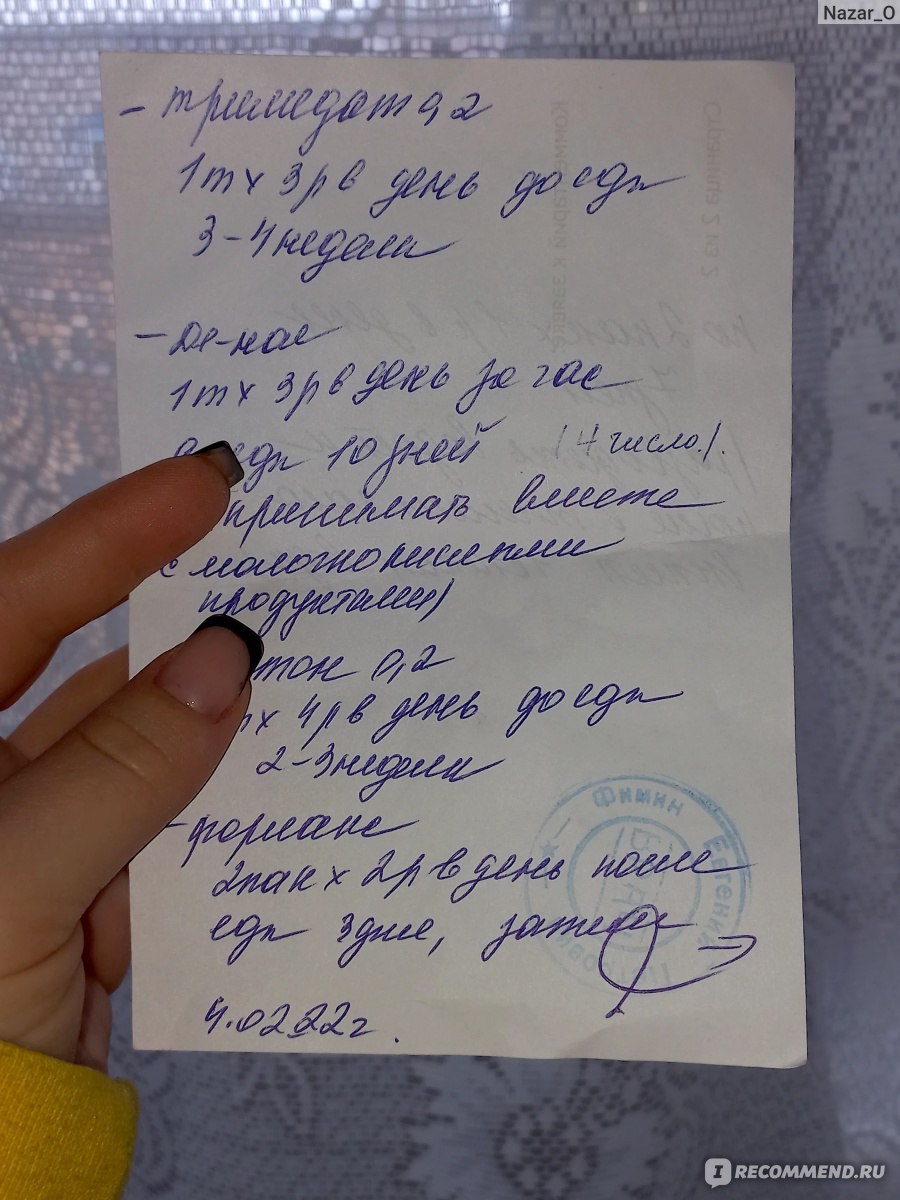 Nazar_O
- Тримедат 0,2
1т х 3р в день до еды
3-4 недели
- Де-нол
1т х 3р в день за час
еды 10 дней (4 число).
принимать вместе
с молочнокислыми
продуктами)
тон 0,2
х 4р в день до еды
2-3 недели
-
2пак х 2р в день после
еды 3 дня, затем
4.02.22г.
Страница 2 из 2
Комментарий к
Фимин Евгений
IRECOMMEND.RU